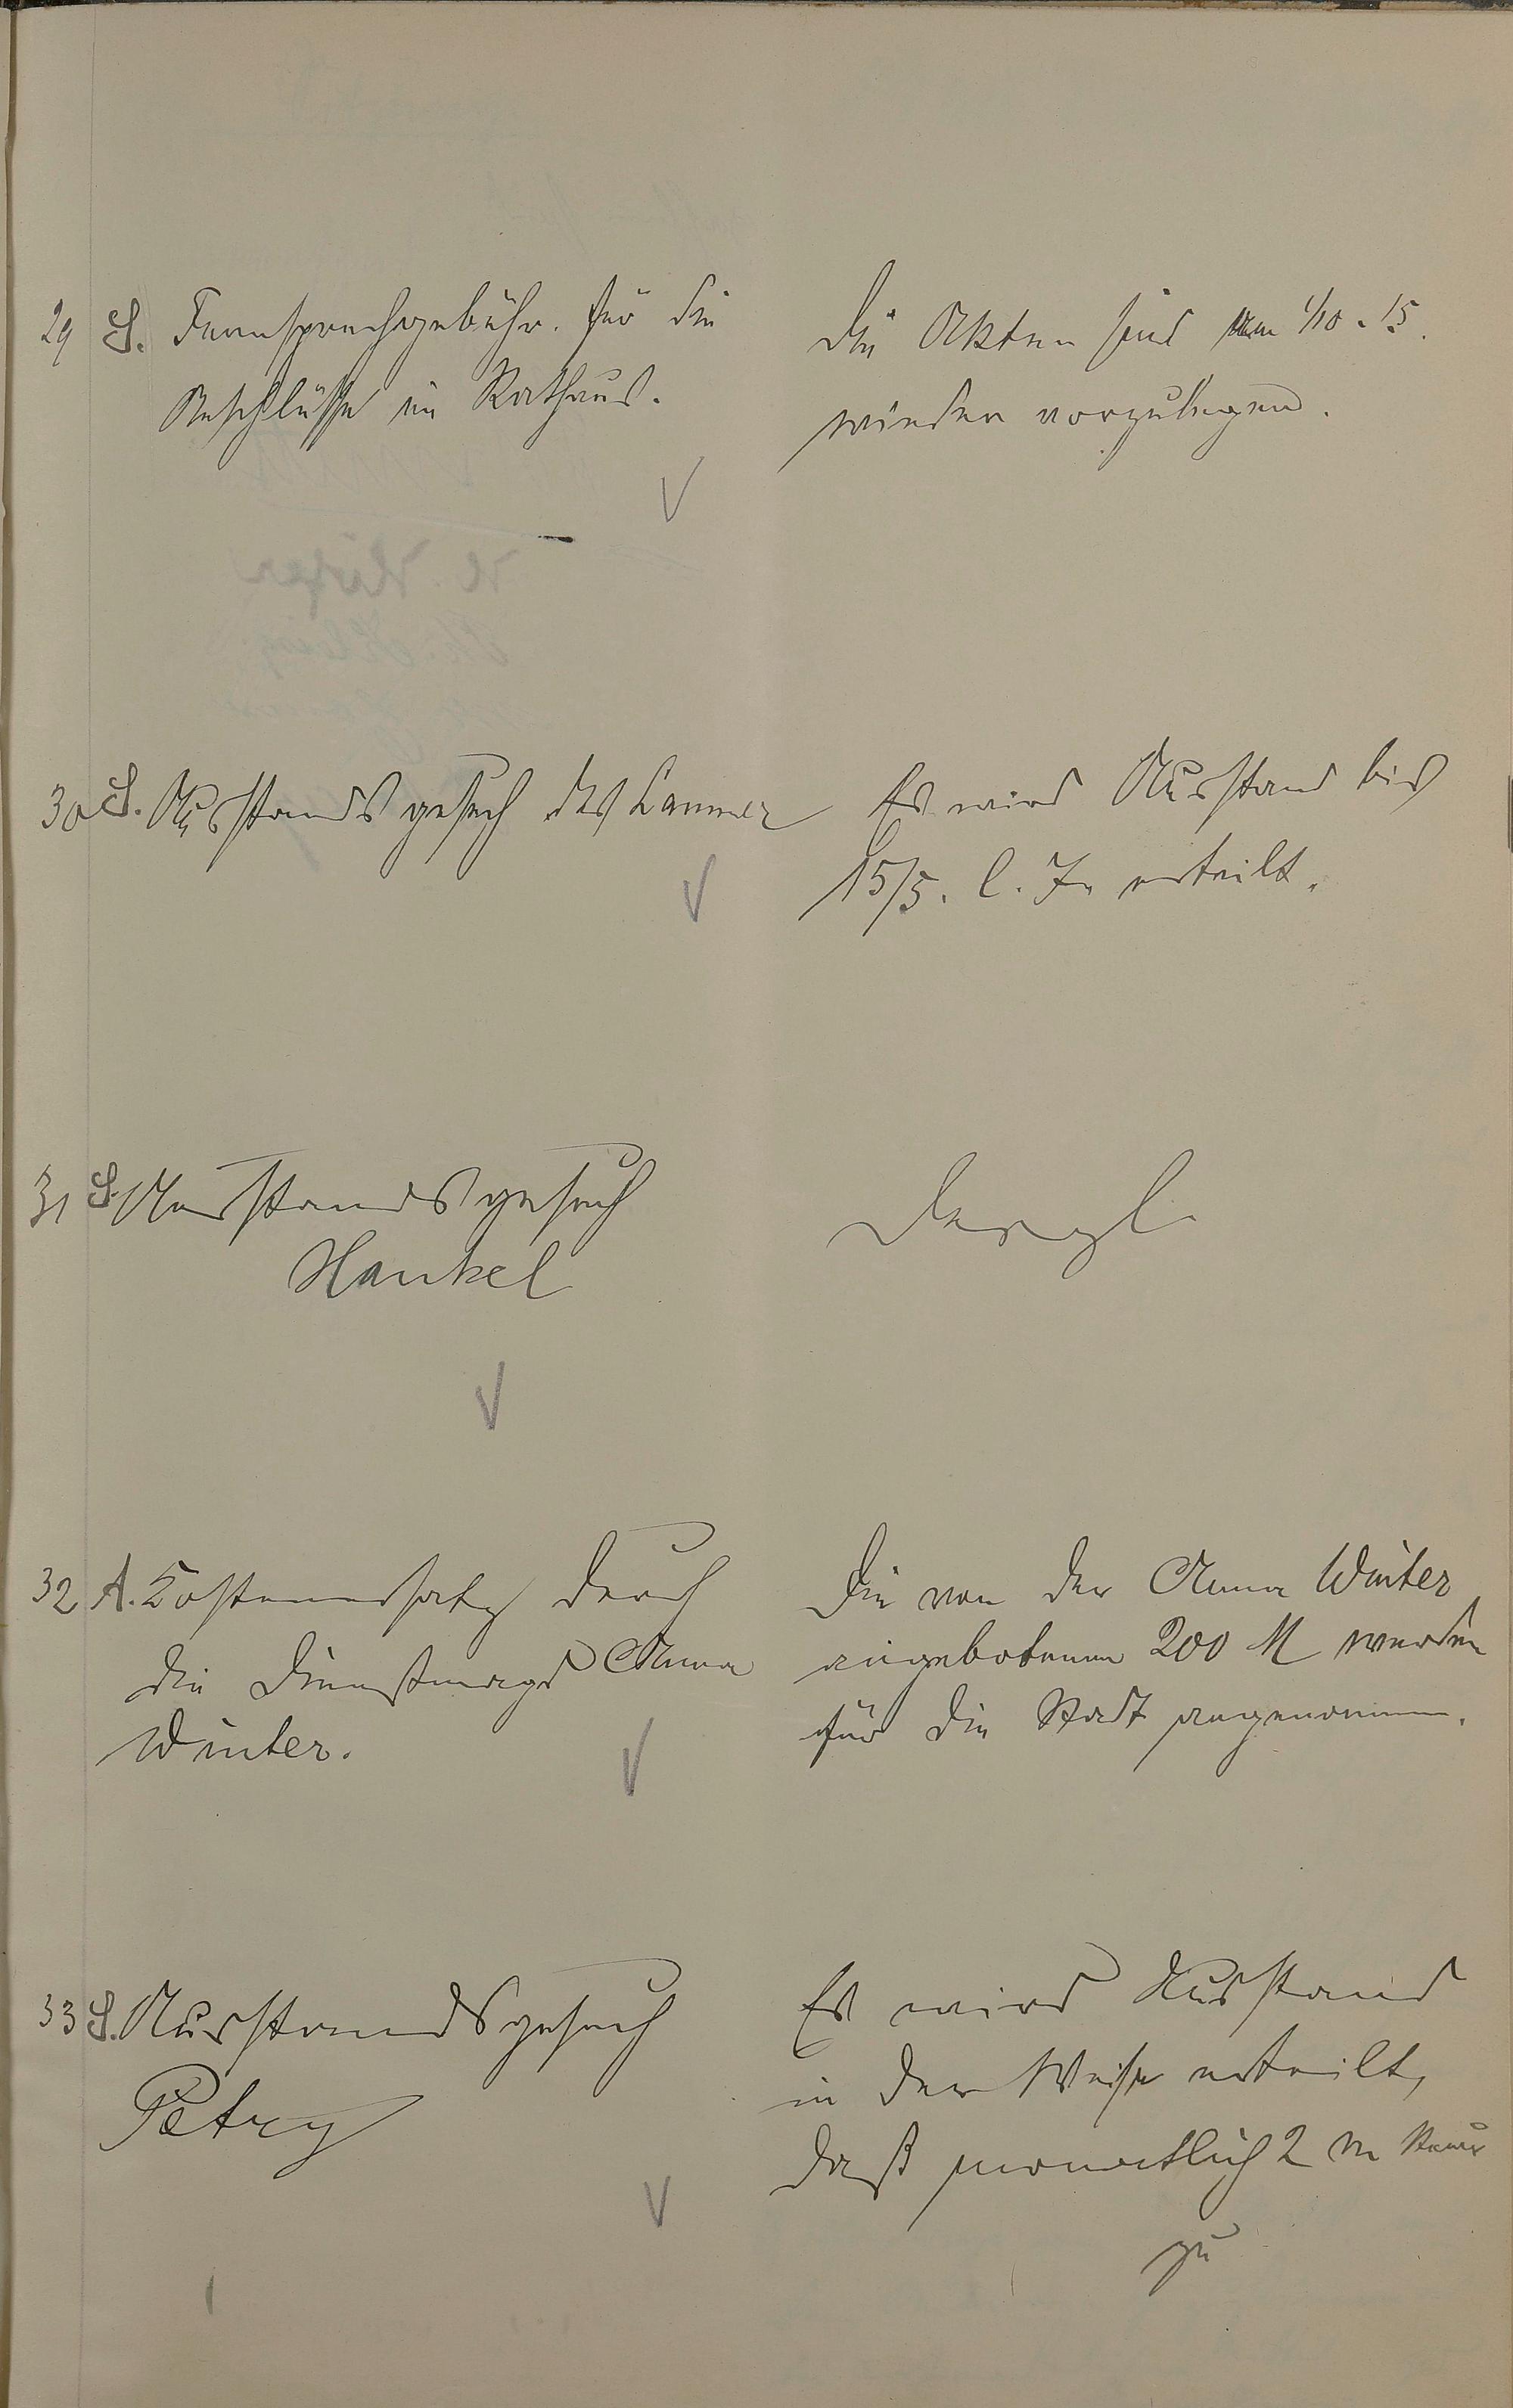 29 S. Fernsprechgebühr. für die
Anschlüsse im Rathaus.
Die Akten sind am 1/10. 15.
wieder vorzulegen.
30 S. Ausstandsgesuch des Lammer
Es wird Ausstand bis
15/5. l. Js erteilt.
31 S. Ausstandsgesuch
Hankel
Dergl.
32 A. Kostenersatz durch
die Dienstmagd Anna
Winter.
Die von der Anna Winter
angebotenen 200 M werden
für die Stadt angenommen.
33 S. Ausstandsgesuch
Petry
Es wird Ausstand
in der Weise erteilt,
daß monatlich 2 M
zu